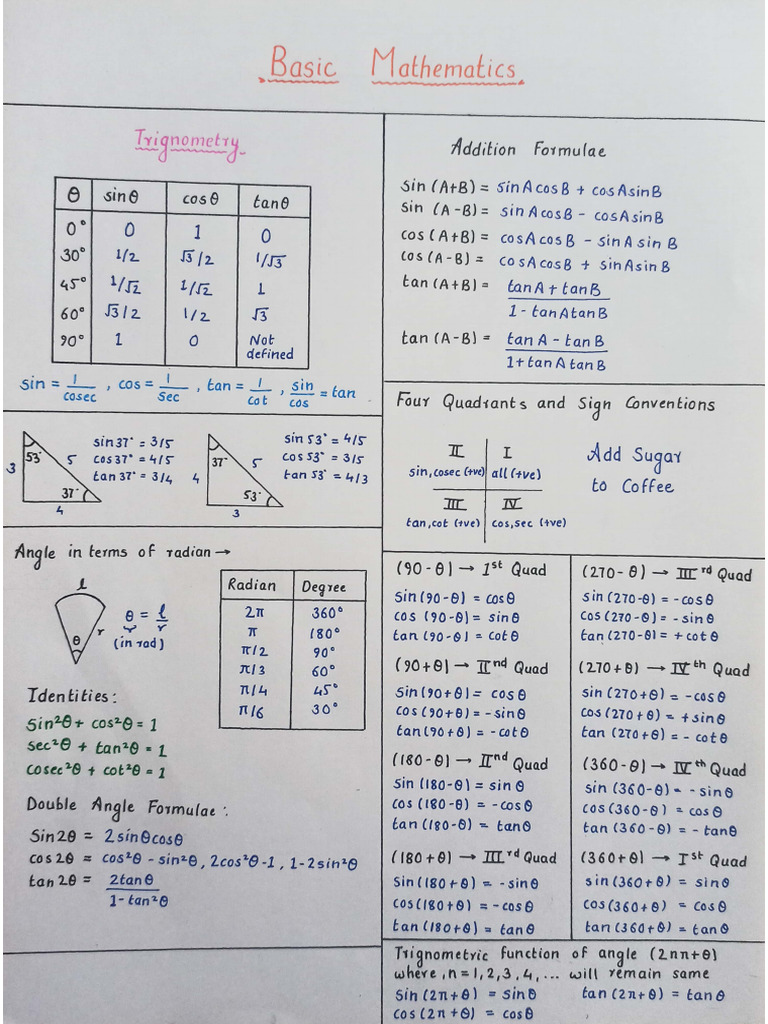 Basic Mathematics
Trignometry
θ sinθ cosθ tanθ
0° 0 1 0
30° 1/2 √3/2 1/√3
45° 1/√2 1/√2 1
60° √3/2 1/2 √3
90° 1 0 Not defined
sin = 1/cosec , cos = 1/sec , tan = 1/cot , sin/cos = tan
3 53° 5 37° 4
sin37° = 3/5
cos37° = 4/5
tan37° = 3/4
4 37° 5 53° 3
sin 53° = 4/5
cos 53° = 3/5
tan 53° = 4/3
Angle in terms of radian →
l
θ r
θ = l/r
(in rad)
Radian Degree
2π 360°
π 180°
π/2 90°
π/3 60°
π/4 45°
π/6 30°
Identities:
sin²θ + cos²θ = 1
sec²θ + tan²θ = 1
cosec²θ + cot²θ = 1
Double Angle Formulae:
Sin2θ = 2sinθcosθ
cos2θ = cos²θ - sin²θ, 2cos²θ-1, 1-2sin²θ
tan2θ = 2tanθ
1-tan²θ
Addition Formulae
sin (A+B) = sinAcosB + cosAsinB
sin (A-B) = sinAcosB - cosAsinB
cos (A+B) = cosAcosB - sinA sinB
cos (A-B) = cosAcosB + sinAsinB
tan (A+B) = tanA + tanB
1 - tanAtanB
tan (A-B) = tanA - tanB
1+tanAtanB
Four Quadrants and Sign Conventions
II I
sin, cosec (+ve) all (+ve)
III IV
tan, cot (+ve) cos, sec (+ve)
Add Sugar
to Coffee
(90-θ) → 1st Quad
Sin(90-θ) = cosθ
cos (90-θ) = sinθ
tan(90-θ) = cotθ
(90+θ) → IInd Quad
Sin(90+θ) = cosθ
cos(90+θ) = -sinθ
tan(90+θ) = -cotθ
(180-θ) → IInd Quad
Sin (180-θ) = sinθ
cos (180-θ) = -cosθ
tan (180-θ) = tanθ
(180+θ) → IIIrd Quad
Sin(180+θ) = -sinθ
cos(180+θ) = -cosθ
tan(180+θ) = tanθ
(270-θ) → IIIrd Quad
sin(270-θ) = -cosθ
cos(270-θ) = -sinθ
tan(270-θ) = +cotθ
(270+θ) → IVth Quad
sin(270+θ) = -cosθ
cos(270+θ) = +sinθ
tan (270+θ) = -cotθ
(360-θ) → IVth Quad
sin (360-θ) = -sinθ
cos(360-θ) = cosθ
tan (360-θ) = -tanθ
(360+θ) → Ist Quad
sin(360+θ) = sinθ
cos(360+θ) = cosθ
tan (360+θ) = tanθ
Trignometric function of angle (2nπ+θ)
where, n = 1, 2, 3, 4, ... will remain same
Sin (2π+θ) = sinθ tan (2π+θ) = tanθ
cos (2π+θ) = cosθ